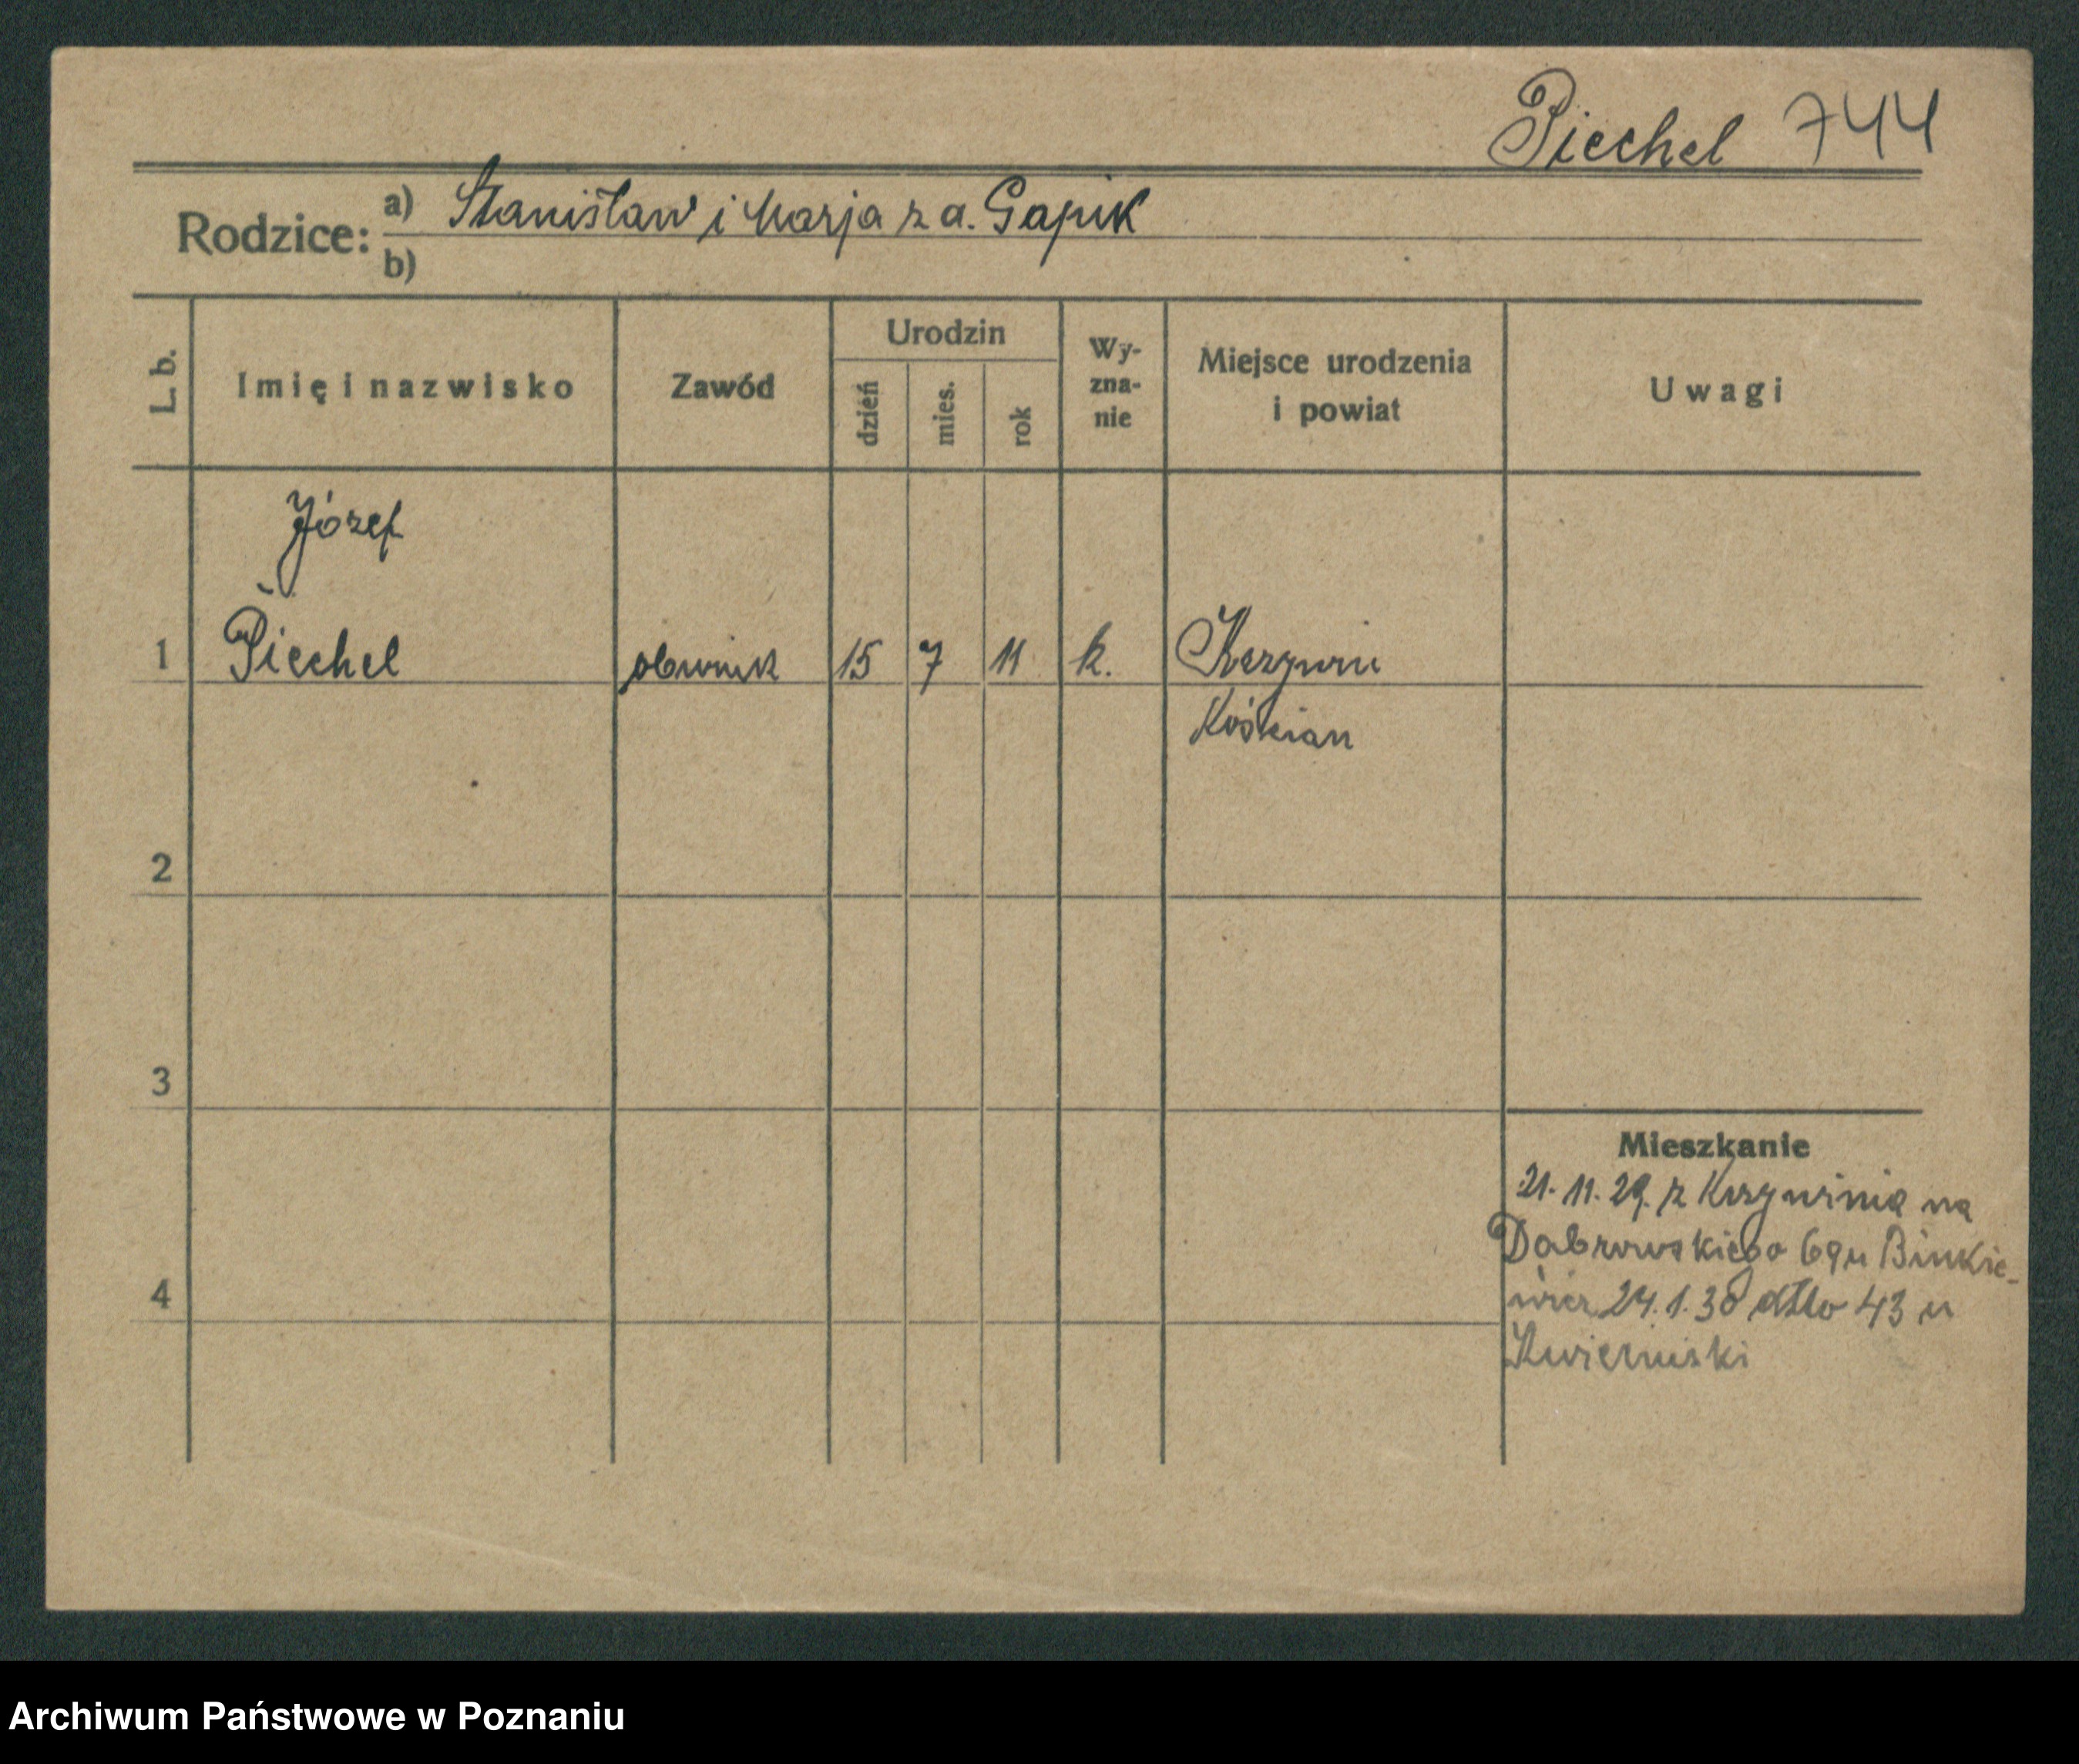 Piechel 744
Rodzice: a) Stanisław i Marja z d. Gapik
b)
L. b.
Imię i nazwisko
Zawód
Urodzin
dzień
mies.
rok
Wy-
zna-
nie
Miejsce urodzenia
i powiat
Uwagi
Józef
1 Piechel
15 7 11 k. Krzywiń
Kościan
2
3
4
Mieszkanie
21. 11. 29. z Krzywinia na
Dąbrowskiego 69 u Binkie-
wicz 24.1.30 dtto 43 u
Archiwum Państwowe w Poznaniu